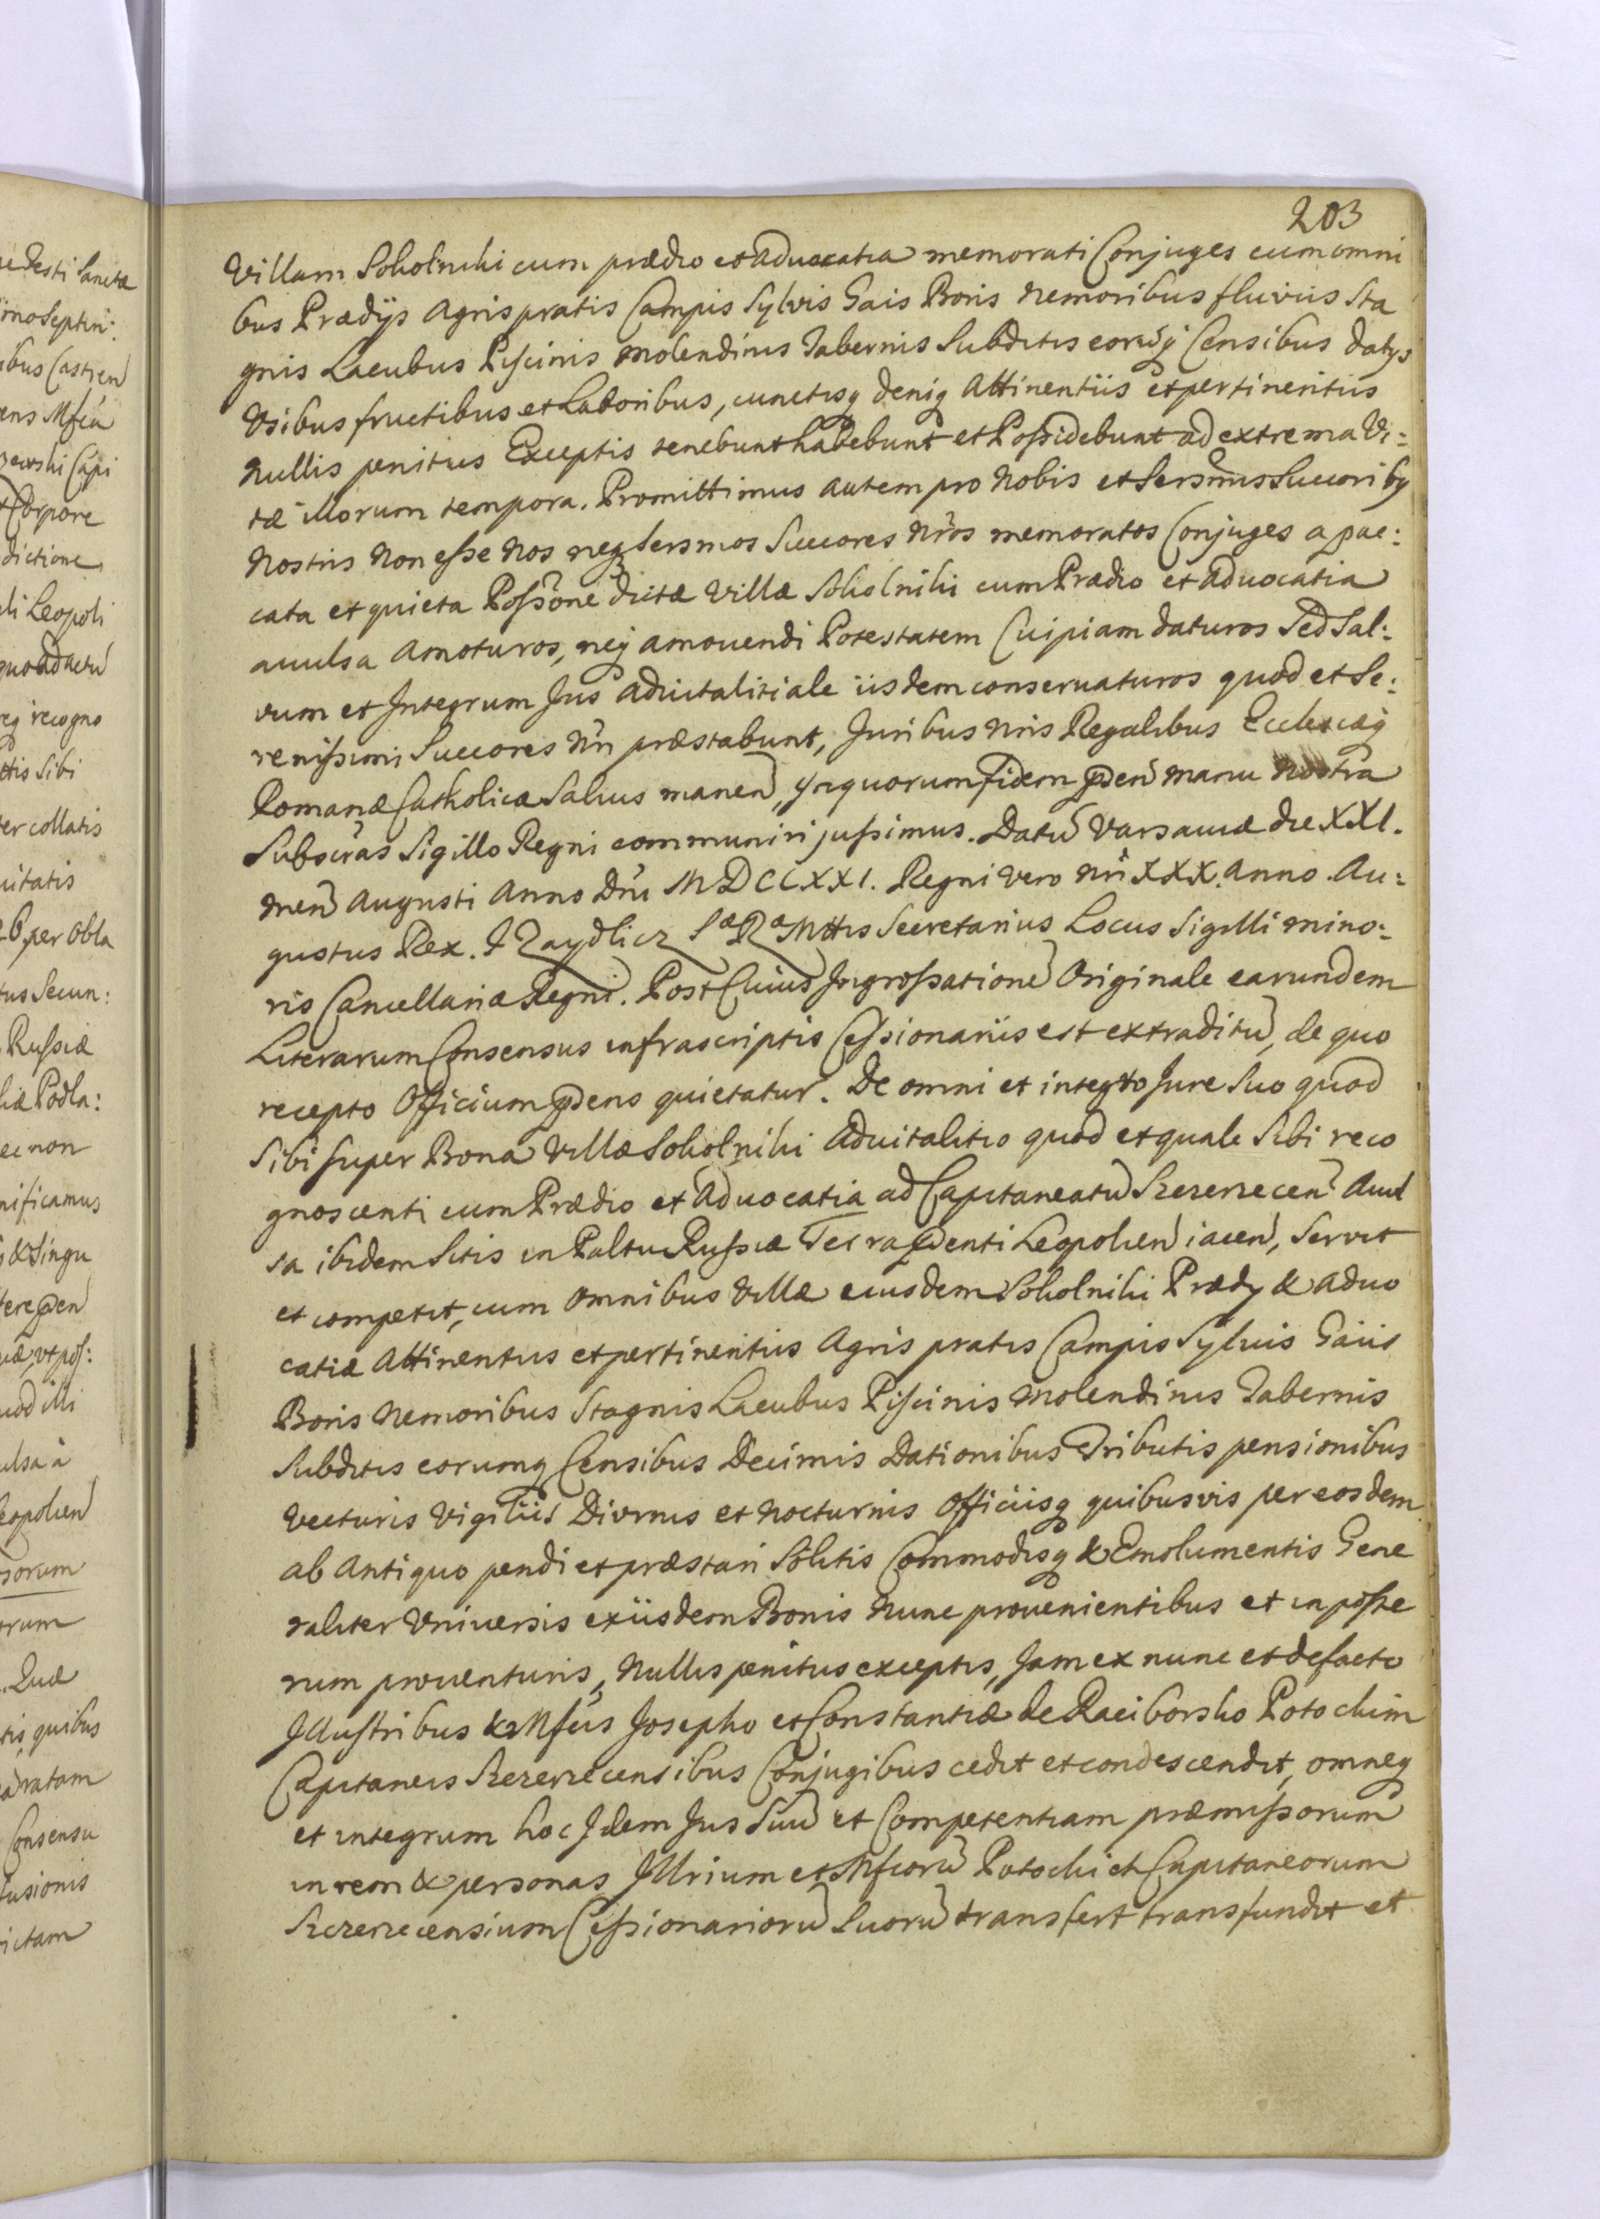 203
Villam Sokolniki cum prædio et aduocatia memorati Conjuges cum omni
bus Prædijs Agris pratis Campis Sylvis Gais Boris Nemoribus fluviis Sta
gnis Lacubus Piscinis Molendinis Tabernis Subditis eorūq Censibus datys
Vsibus fructibus et Laboribus, cunctisq deniq Attinentiis et pertinentiis
Nullis penitus Exceptis tenebunt habebunt et Possidebunt ad extrema Vi:
tæ illorum tempora. Promittimus autem pro Nobis et Sersmis Succoriby
Nostris Non esse Nos neq Sersmos Succores Nros memoratos Conjuges a pac:
cata et quieta Possone dictæ Villæ Sokolniki cum Prædio et Aduocatia
auulsa Amoturos, neq amouendi Potestatem Cuipiam daturos Sed Sal:
vum et Integrum Jus aduitalitiale iisdem conseruaturos quod et Se:
renissimi Succores Nri præstabunt, Juribus Nris Regalibus Ecclecæq
Romanæ Catholicæ Saluis manen, Ynquorum fidem pden manu Nostra
Subscras Sigillo Regni communiri jussimus. Datū Varsauiæ die XXI.
Men Augusti Anno Dni MDCCXXI. Regni vero Nri XXX. Anno. Au:
gustus Rex. J Zaydlicz Sæ Ræ Mttis Secretarius Locus Sigilli mino:
ris Cancellariæ Regni. Post Cuius Ingrossatione Originale earundem
Literarum Consensus infrascriptis Cessionariis est extraditū, de quo
recepto Officium pdens quietatur. De omni et integro Jure Suo quod
Sibi super Bona Villæ Sokolniki Aduitalitio quod et quale Sibi reco
gnoscenti cum Prædio et Aduocatia ad Capitaneatū Szczerzecen Auul
sa ibidem Sitis in Paltu Russiæ Terra pdenti Leopolien iacen, Servit
et competit, cum omnibus Villæ eiusdem Sokolniki Prædy & Aduo
catiæ Attinentiis et pertinentiis Agris pratis Campis Syluis Gaiis
Boris Nemoribus Stagnis Lacubus Piscinis Molendinis Tabernis
Subditis eorumq Censibus Decimis Dationibus Tributis pensionibus
Vecturis Vigiliis Diurnis et Nocturnis Officiisq quibusvis per eosdem
ab Antiquo pendi et præstari Solitis Commodisq & Emolumentis Gene
raliter Vniuersis ex iisdem Bonis Nunc prouenientibus et in poste
rum prouenturis, Nullis penitus exceptis, Jam ex nunc et defacto
Illustribus & Mfcis Josepho et Constantiæ de Raciborsko Potockim
Capitaneis Szczerzecensibus Conjugibus cedit et condescendit, omneq
et integrum hoc Idem Jus Suū et Competentiam præmissorum
in rem & personas Illrium et Mfcorū Potockich Capitaneorum
Szczerzecensium Cessionariorū Suorū transfert transfundit et